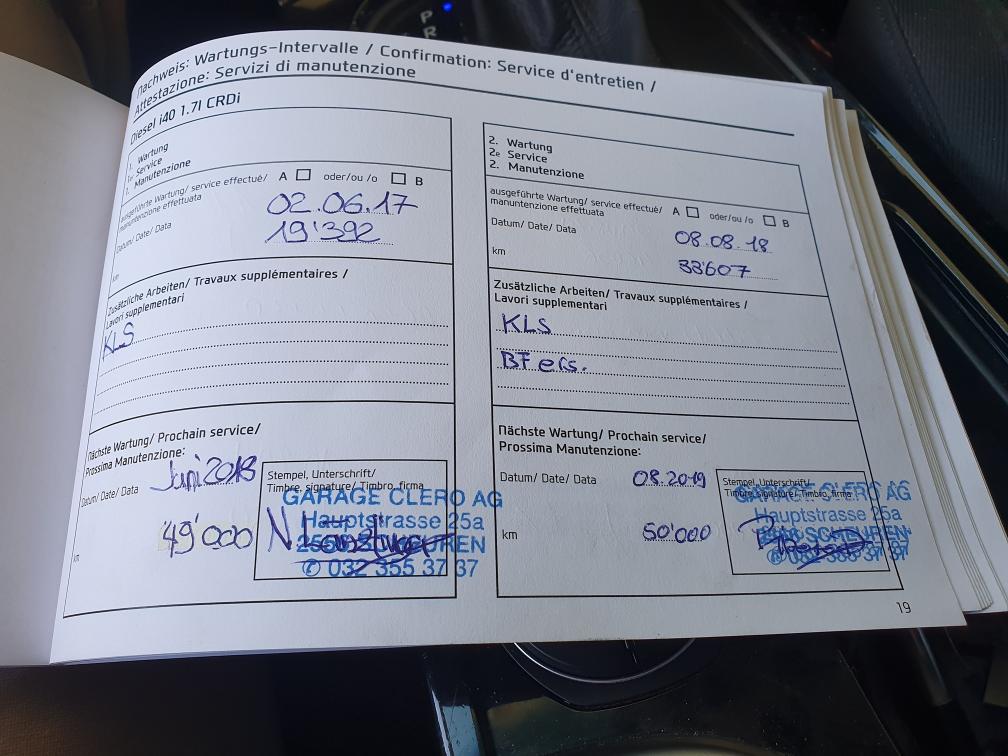 P
R
Nachweis: Wartungs-Intervalle / Confirmation: Service d'entretien /
Attestazione: Servizi di manutenzione
Diesel i40 1.7l CRDi
1. Wartung
1er Service
1. Manutenzione
ausgeführte Wartung/ service effectué/ A oder/ou /o B
manutenzione effettuata
02.06.17
Datum/ Date/ Data
19'392
km
Zusätzliche Arbeiten/ Travaux supplémentaires /
Lavori supplementari
KLS
Nächste Wartung/ Prochain service/
Prossima Manutenzione:
Datum/ Date/ Data Juni 2018
km 49'000
Stempel, Unterschrift/
Timbre, signature/ Timbro, firma
GARAGE CLERO AG
Hauptstrasse 25a
✆ 032 355 37 37
2. Wartung
2e Service
2. Manutenzione
ausgeführte Wartung/ service effectué/ A oder/ou /o B
manuntenzione effettuata
Datum/ Date/ Data 08.08.18
km 33'607
Zusätzliche Arbeiten/ Travaux supplémentaires /
Lavori supplementari
KLS
BF ers.
Nächste Wartung/ Prochain service/
Prossima Manutenzione:
Datum/ Date/ Data 08.2019
km 50'000
Stempel, Unterschrift/
Timbre, signature/ Timbro, firma
GARAGE CLERO AG
Hauptstrasse 25a
✆ 032 355 37 37
19